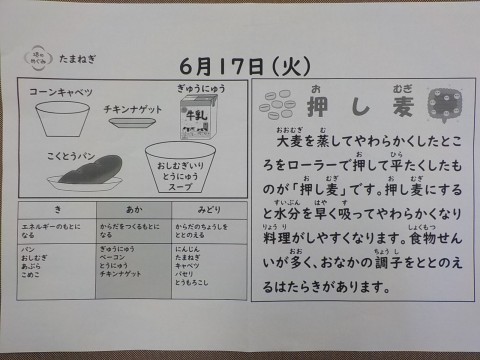 堺の
めぐみ
たまねぎ
6月17日(火)
コーンキャベツ
チキンナゲット
ぎゅうにゅう
牛乳
こくとうパン
おしむぎいり
とうにゅう
スープ
き
あか
みどり
エネルギーのもとに
なる
からだをつくるもとに
なる
からだのちょうしを
ととのえる
パン
おしむぎ
あぶら
こめこ
ぎゅうにゅう
ベーコン
とうにゅう
チキンナゲット
にんじん
たまねぎ
キャベツ
パセリ
とうもろこし
お むぎ
押し麦
おおむぎ む
大麦を蒸してやわらかくしたとこ
お ひら
ろをローラーで押して平たくしたも
お むぎ お むぎ
のが「押し麦」です。押し麦にする
すいぶん はや す
と水分を早く吸ってやわらかくなり
りょうり しょくもつ
料理がしやすくなります。食物せん
おお ちょうし
いが多く、おなかの調子をととのえ
るはたらきがあります。